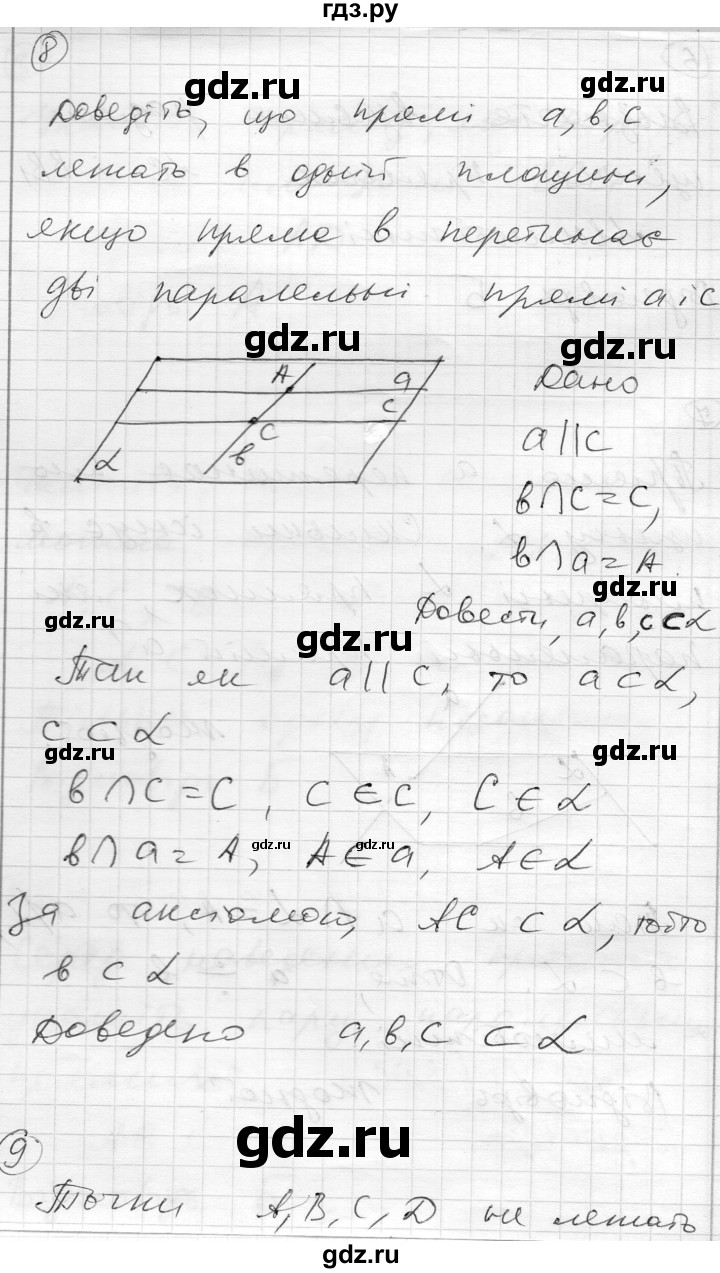 гдз.ру
8
gdz.ru gdz.ru
Доведіть, що прямі а, в, с
лежать в одній площині,
якщо пряма в перетинає
дві паралельні прямі а і с
gdz.ru gdz.ru
A a
C c
α в
Дано
a||c
в∩c=C,
в∩a=A
gdz.ru
gdz.ru gdz.ru
Довести, а, в, с⊂α
Так як a||c, то a⊂α,
c⊂α
gdz.ru gdz.ru
в∩c=C, C∈c, C∈α
в∩a=A, A∈a, A∈α
gdz.ru gdz.ru
За аксіомою, AC⊂α, тобто
в⊂α
Доведено а, в, с ⊂ α
gdz.ru
9
Точки A, B, C, D не лежать
gdz.ru gdz.ru